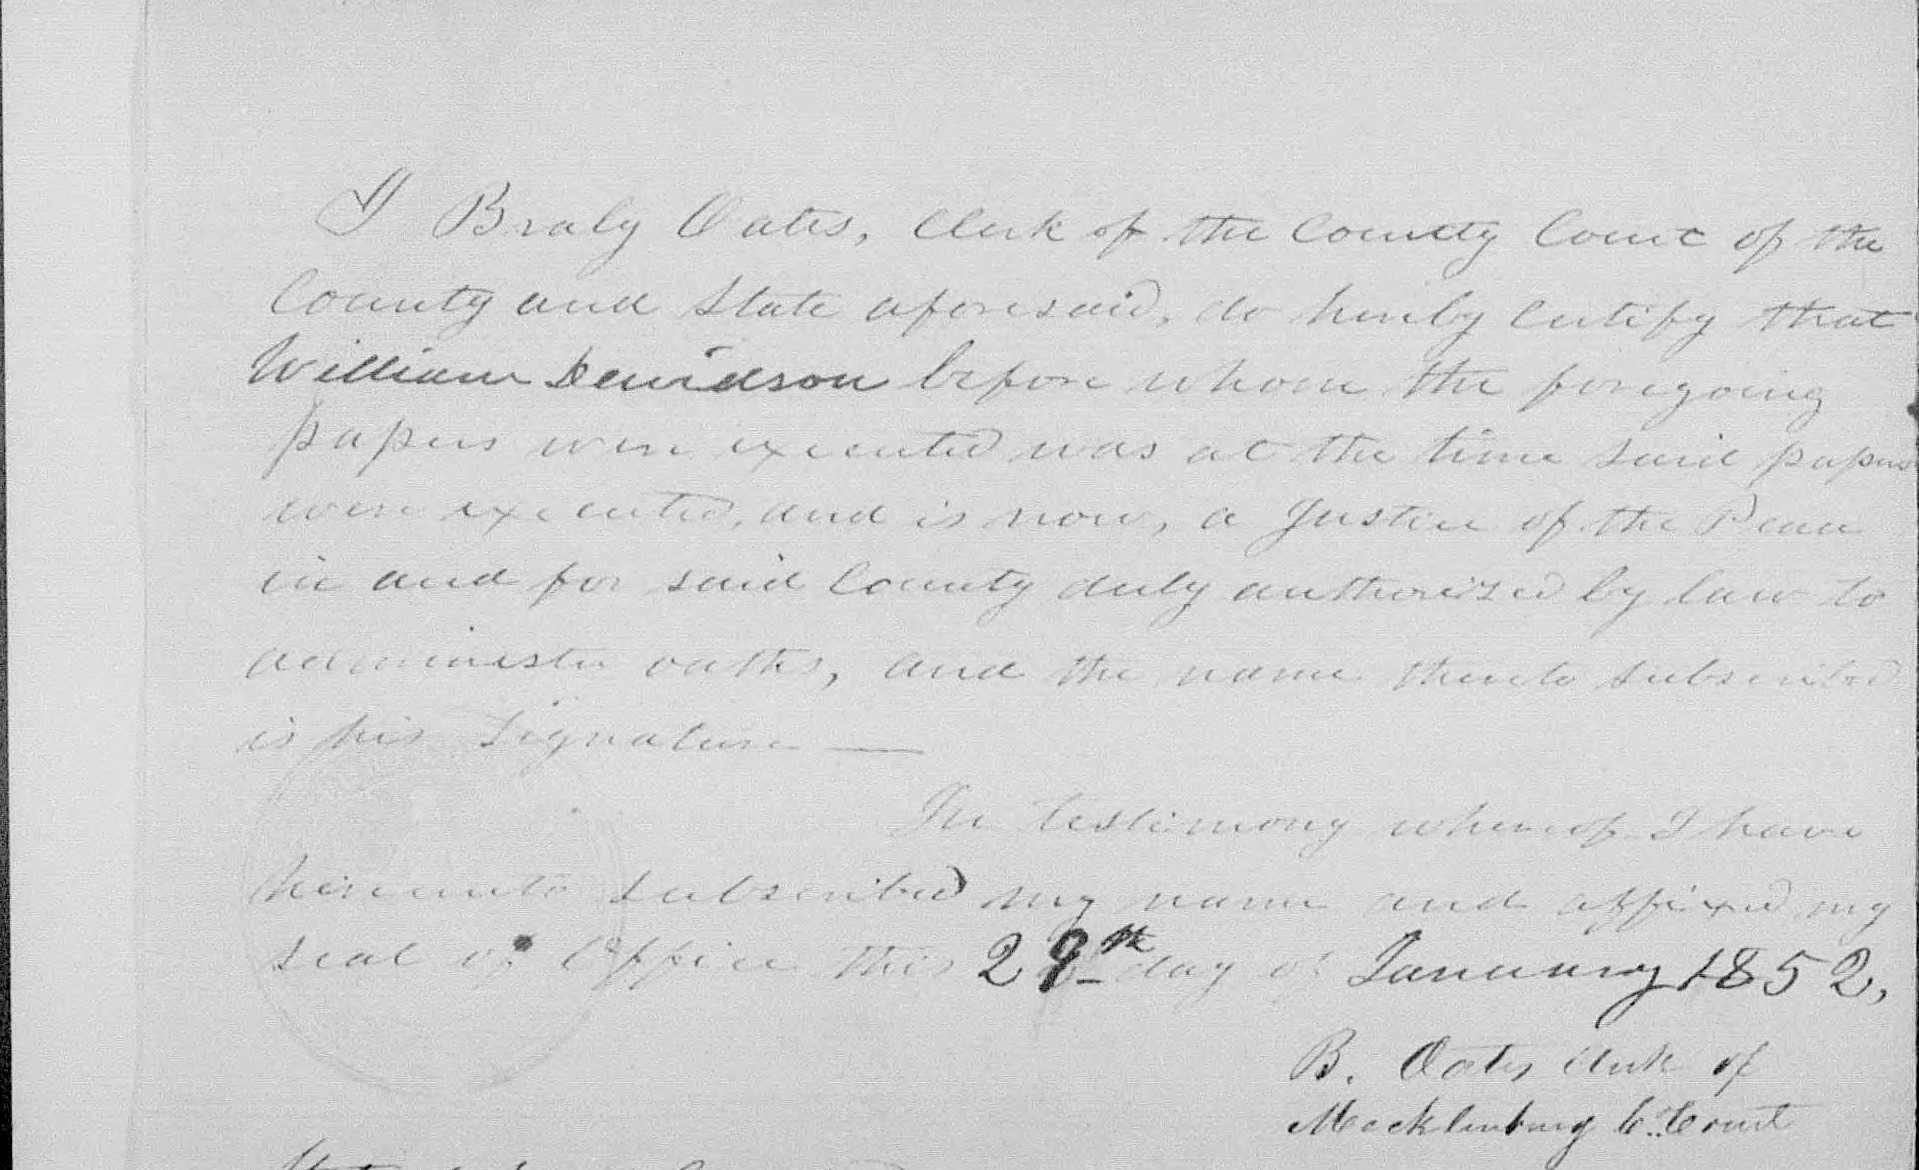 I Braly Oates, Clerk of the County Court of the
County and State aforesaid, do hereby certify that
William Davidson before whom the foregoing
papers were executed was at the time said papers
were executed, and is now, a Justice of the Peace
in and for said County duly authorised by law to
administer oaths, and the name thereto subscribed
is his Signature —
In testimony whereof I have
hereunto subscribed my name and affixed my
seal of Office this 29th day of January 1852,
B. Oates Clerk of
Mecklenburg C. Court